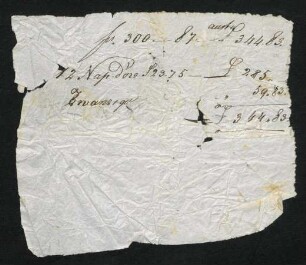 fr. 300. — 87 — 344.83.
12. Nap d'or 23.75 — £ 285.
Zwanzige 59.83.
£ 344.83.